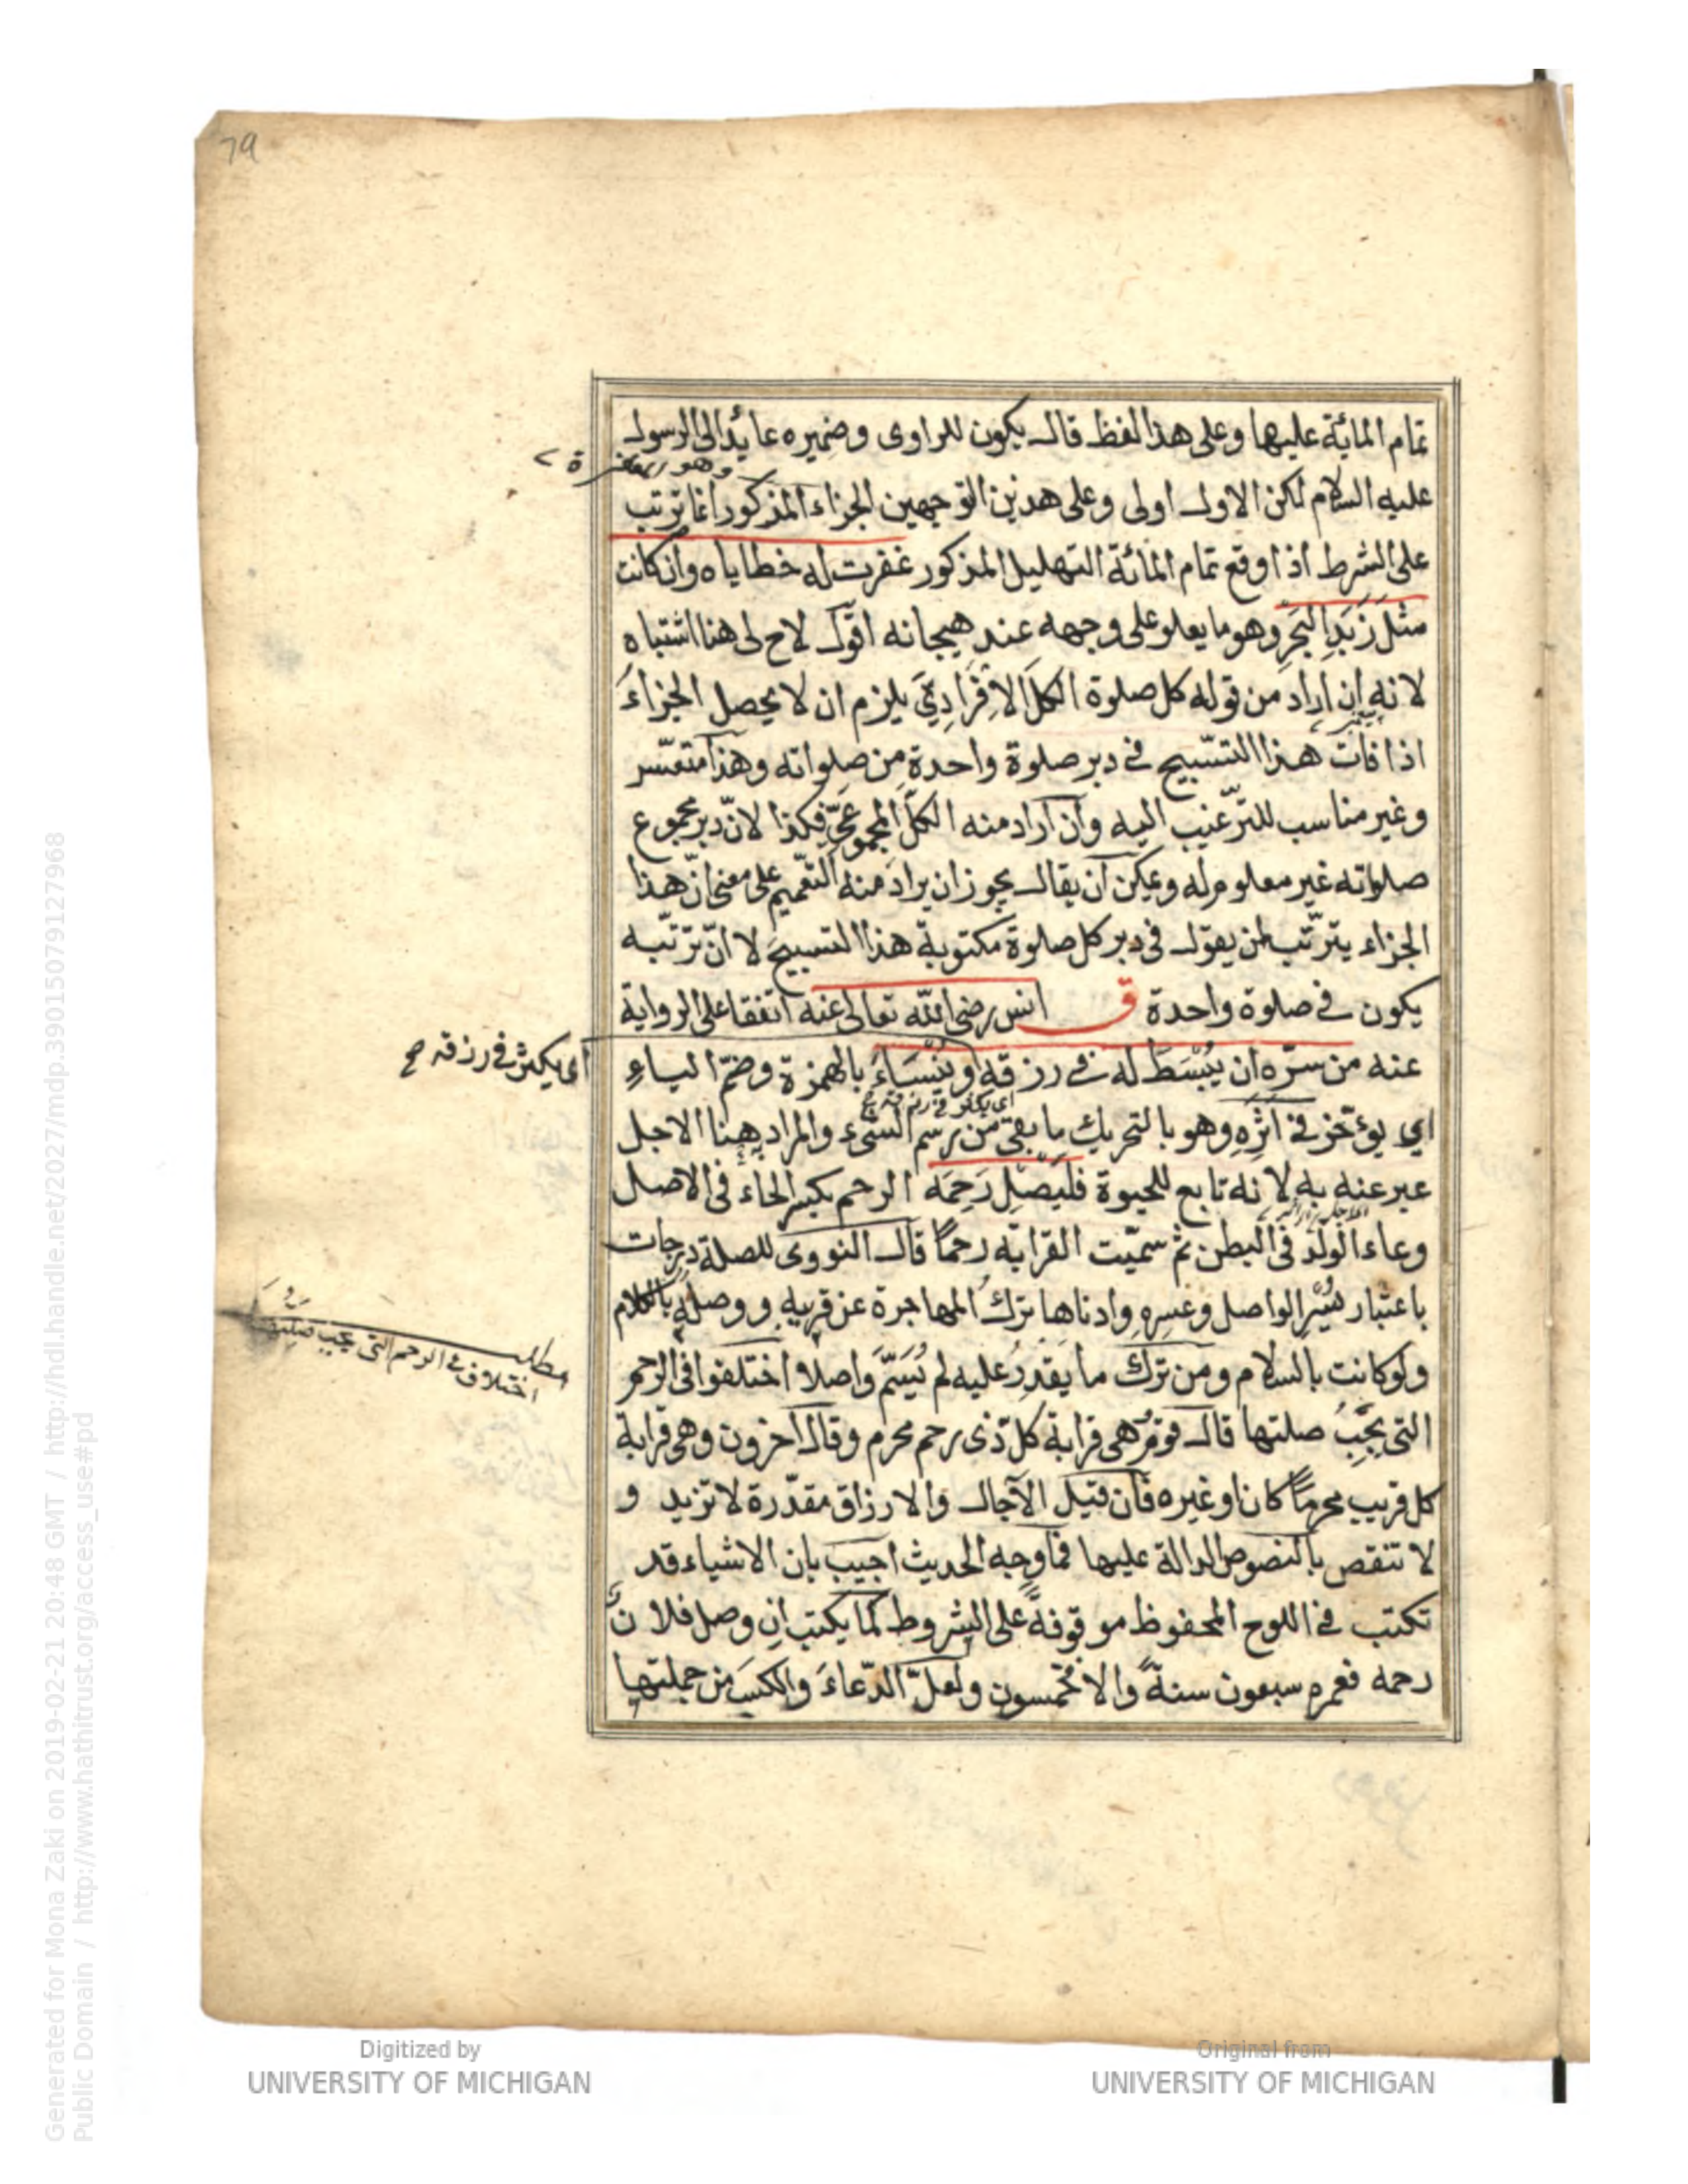 79
تمام المائة عليها وعلى هذا الفظ قال يكون للراوى وضميره عائدا الى الرسول
وهو المغفرة
عليه السلام لكن الاول اولى وعلى هذين التوجيهين الجزاء المذكور انما ترتب
على الشرط اذا وقع تمام المائة التهليل المذكور غفرت له خطاياه وان كانت
مثل زَبَدِ البَحرِ وهو ما يعلو على وجهه عند هيجانه اقول لاح لى هنا اشتباه
لانه ان اراد من قوله كل صلوة الكلَّ الافرادِيَّ يلزم ان لا يحصل الجزاءُ
اذا فات هذا التسبيح فى دبر صلوة واحدة من صلواته وهذا متعسّر
وغير مناسب للترّغيب اليه وان اراد منه الكلَّ المجموعىَّ فكذا لانّ دبر مجموع
صلواته غير معلوم له ويمكن ان يقال يجوز ان يراد منه التعميم على معنى انّ هذا
الجزاء يترتّب لمن يقول فى دبر كل صلوة مكتوبة هذا التسبيح لا انّ ترتّبه
يكون فى صلوة واحدة ق انس رضى الله تعالى عنه اتفقا على الرواية
اى يكثر فى رزقه صح
عنه من سرّه ان يُبْسَطَ له فى رزقه او يُنْسَاءَ بالهمزة وضمّ الياءِ
اى يكثر فى رزقه
اي يؤخّر فى اَثَرِهِ وهو بالتحريك ما بقى من رسم الشىء والمراد ههنا الاجل
عبر عنه به لانه تابع للحيوة فليَصِل رَحِمَه الرحم بكسر الحاء فى الاصل
وعاء الولد فى البطن ثم سمّيت القرابة رحمًا قال النووى للصلة درجات
باعتبار يُسْرِ الواصل وعسره وادناها ترك المهاجرة عن قريبه ووصله بالكلام
ولو كانت بالسلام ومن ترك ما يَقْدِرُ عليه لم يُسَمَّ واصلا اختلفوا فى الرحم
مطلب
اختلاف فى الرحم التى يجب صلتها
التى يَجِبُ صلتها قال قومٌ هى قرابة كلّ ذى رحم محرم وقال آخرون وهى قرابة
كل قريب محرمًا كان او غيره فان قيل الآجال والارزاق مقدّرة لا تزيد و
لا تنقص بالنصوص الدالة عليها فما وجه الحديث اجيب بان الاشياء قد
تكتب فى اللوح المحفوظ موقوفةً على الشروط كما يكتب ان وصل فلان
رحمه فعمره سبعون سنةً والا فخمسون ولعلّ الدّعاءَ والكسبَ من جملتها
Digitized by
UNIVERSITY OF MICHIGAN
Original from
UNIVERSITY OF MICHIGAN
Generated for Mona Zaki on 2019-02-21 20:48 GMT / http://hdl.handle.net/2027/mdp.39015079127968
Public Domain / http://www.hathitrust.org/access_use#pd